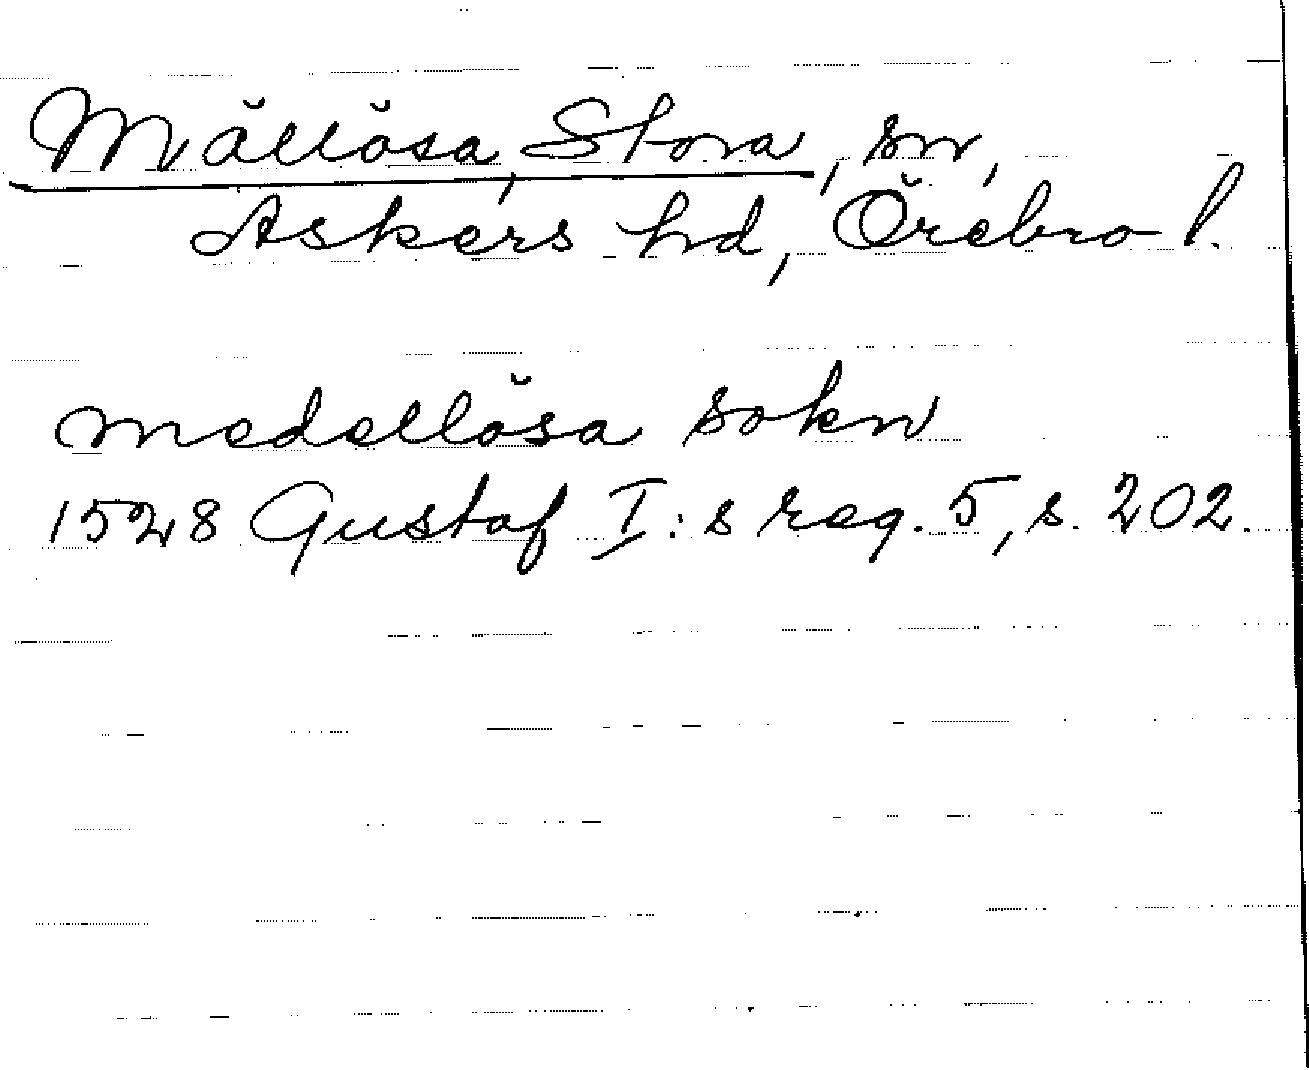 Mällösa, Stora, sn,
Askers hd, Örebro l.
medellösa sokn
1528 Gustaf I:s reg. 5, s. 202.